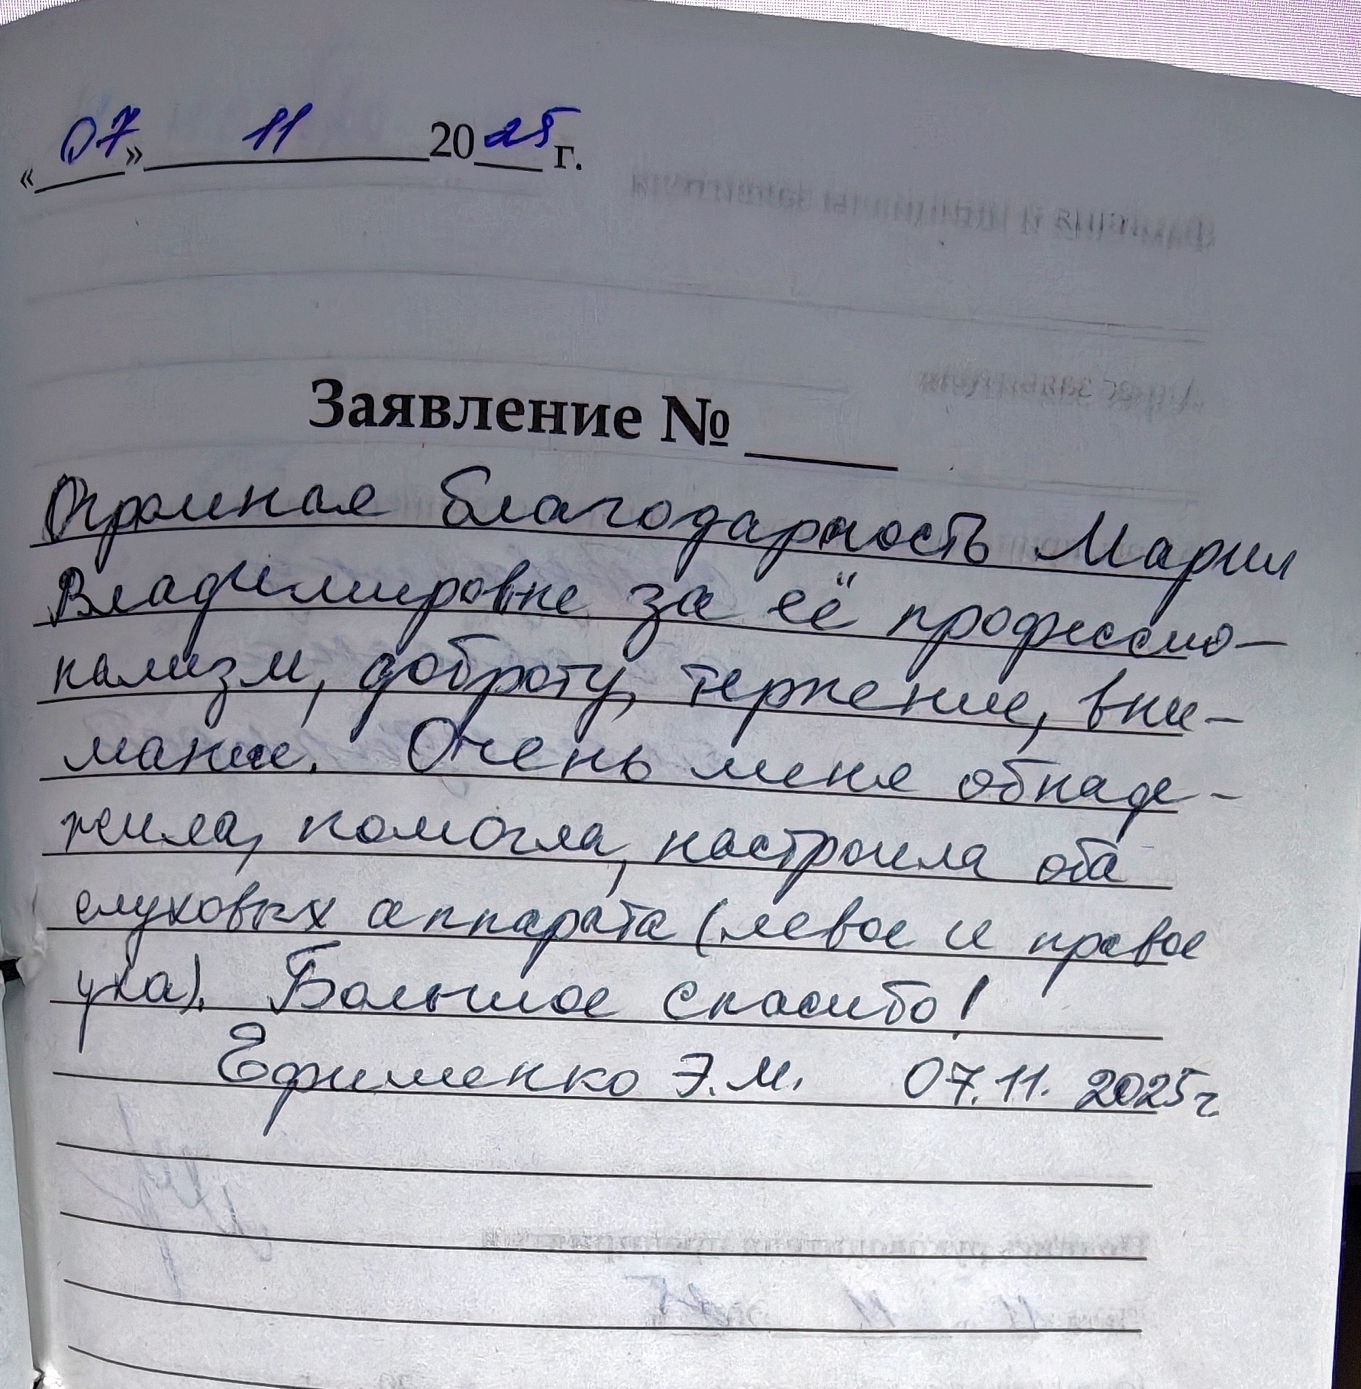 «07» 11 2025 г.
Заявление № ____
Огромная благодарность Марии
Владимировне за её профессио-
нализм, доброту, терпение, вни-
мание. Очень меня обнаде-
жила, помогла, настроила оба
слуховых аппарата (левое и правое
уха). Большое спасибо!
Ефименко Э.М. 07.11.2025г